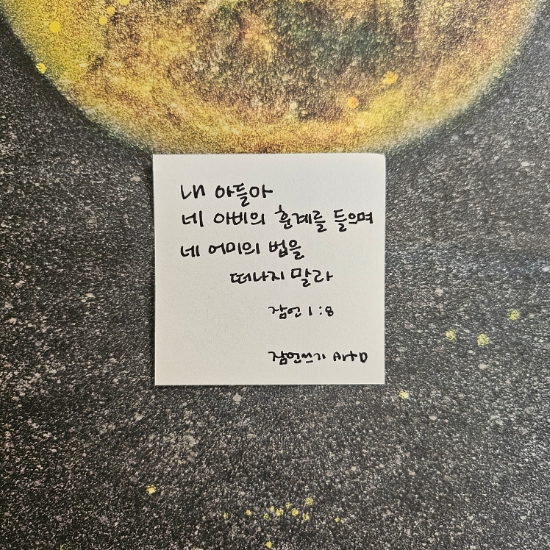 내 아들아
네 아비의 훈계를 들으며
네 어미의 법을
떠나지 말라
잠언 1:8
잠언쓰기 Arto